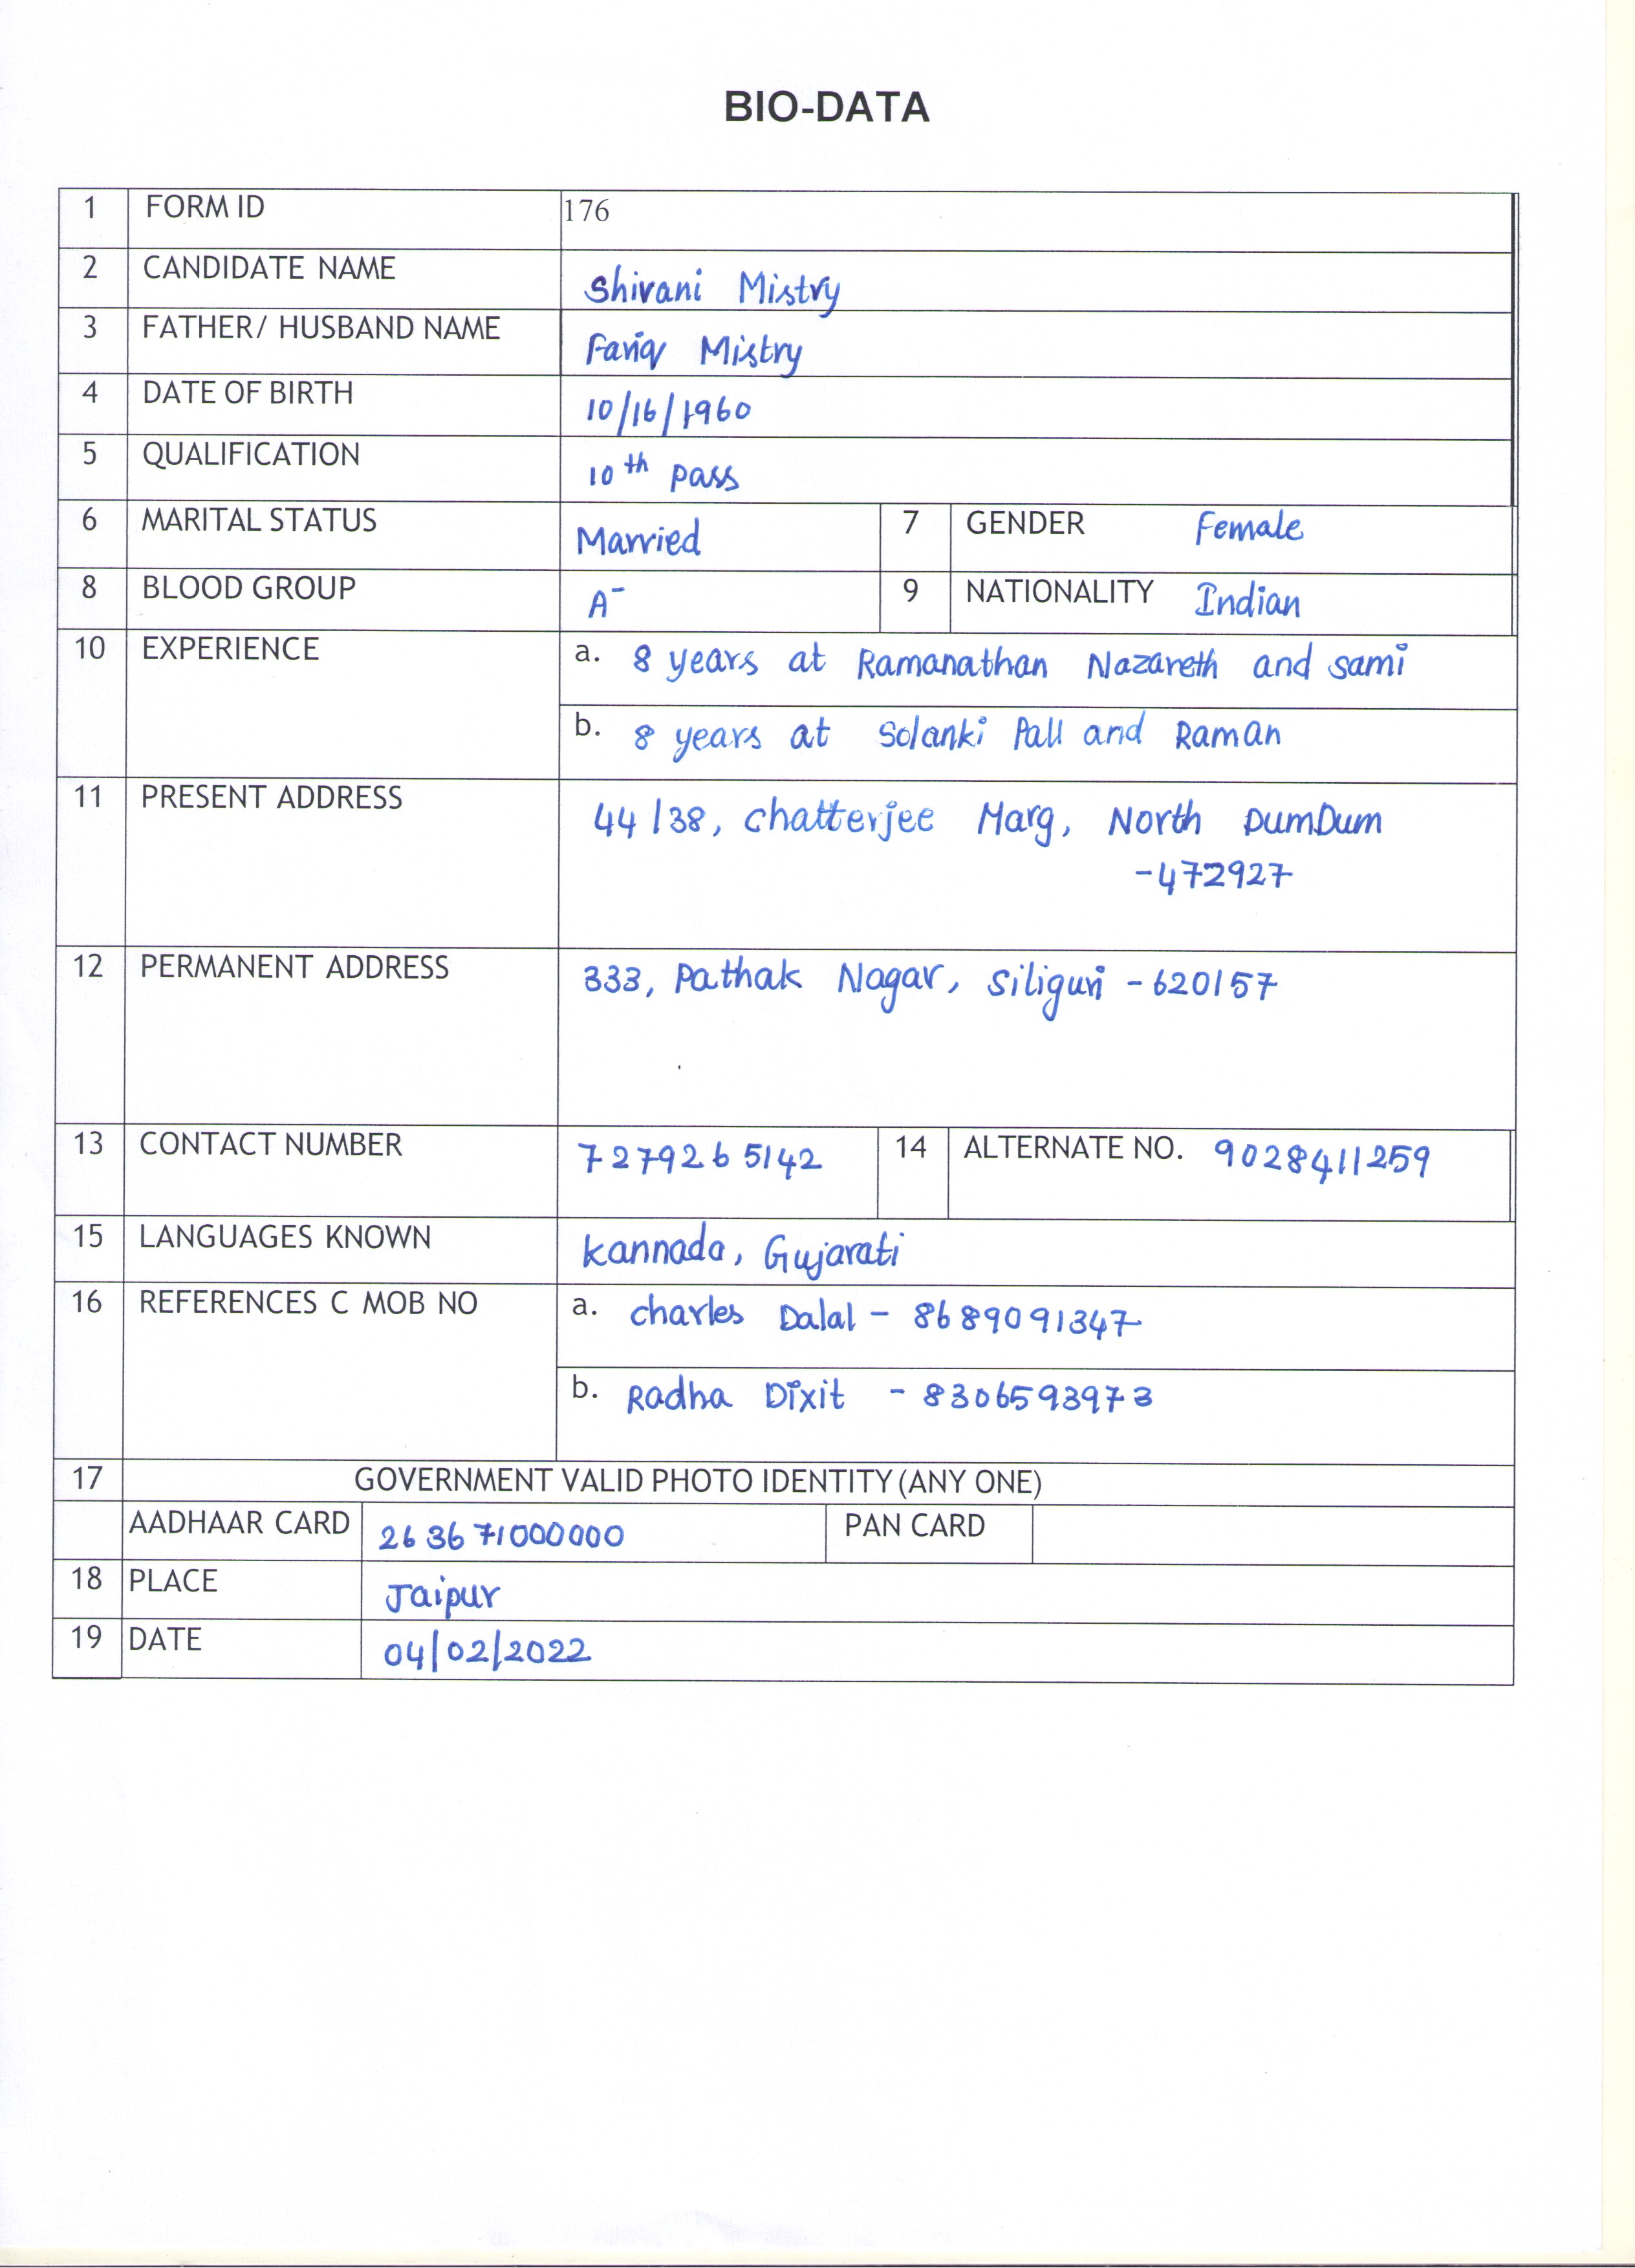 BIO-DATA
1 FORM ID 176
2 CANDIDATE NAME Shivani Mistry
3 FATHER/ HUSBAND NAME Fariq Mistry
4 DATE OF BIRTH 10/16/1960
5 QUALIFICATION 10th pass
6 MARITAL STATUS Married 7 GENDER Female
8 BLOOD GROUP A- 9 NATIONALITY Indian
10 EXPERIENCE a. 8 years at Ramanathan Nazareth and sami
b. 8 years at Solanki Pall and Raman
11 PRESENT ADDRESS 44/38, Chatterjee Marg, North DumDum
-472927
12 PERMANENT ADDRESS 333, Pathak Nagar, Siliguri - 620157
13 CONTACT NUMBER 7279265142 14 ALTERNATE NO. 9028411259
15 LANGUAGES KNOWN Kannada, Gujarati
16 REFERENCES C MOB NO a. Charles Dalal - 8689091347
b. Radha Dixit - 8306593973
17 GOVERNMENT VALID PHOTO IDENTITY (ANY ONE)
AADHAAR CARD 263671000000 PAN CARD
18 PLACE Jaipur
19 DATE 04/02/2022